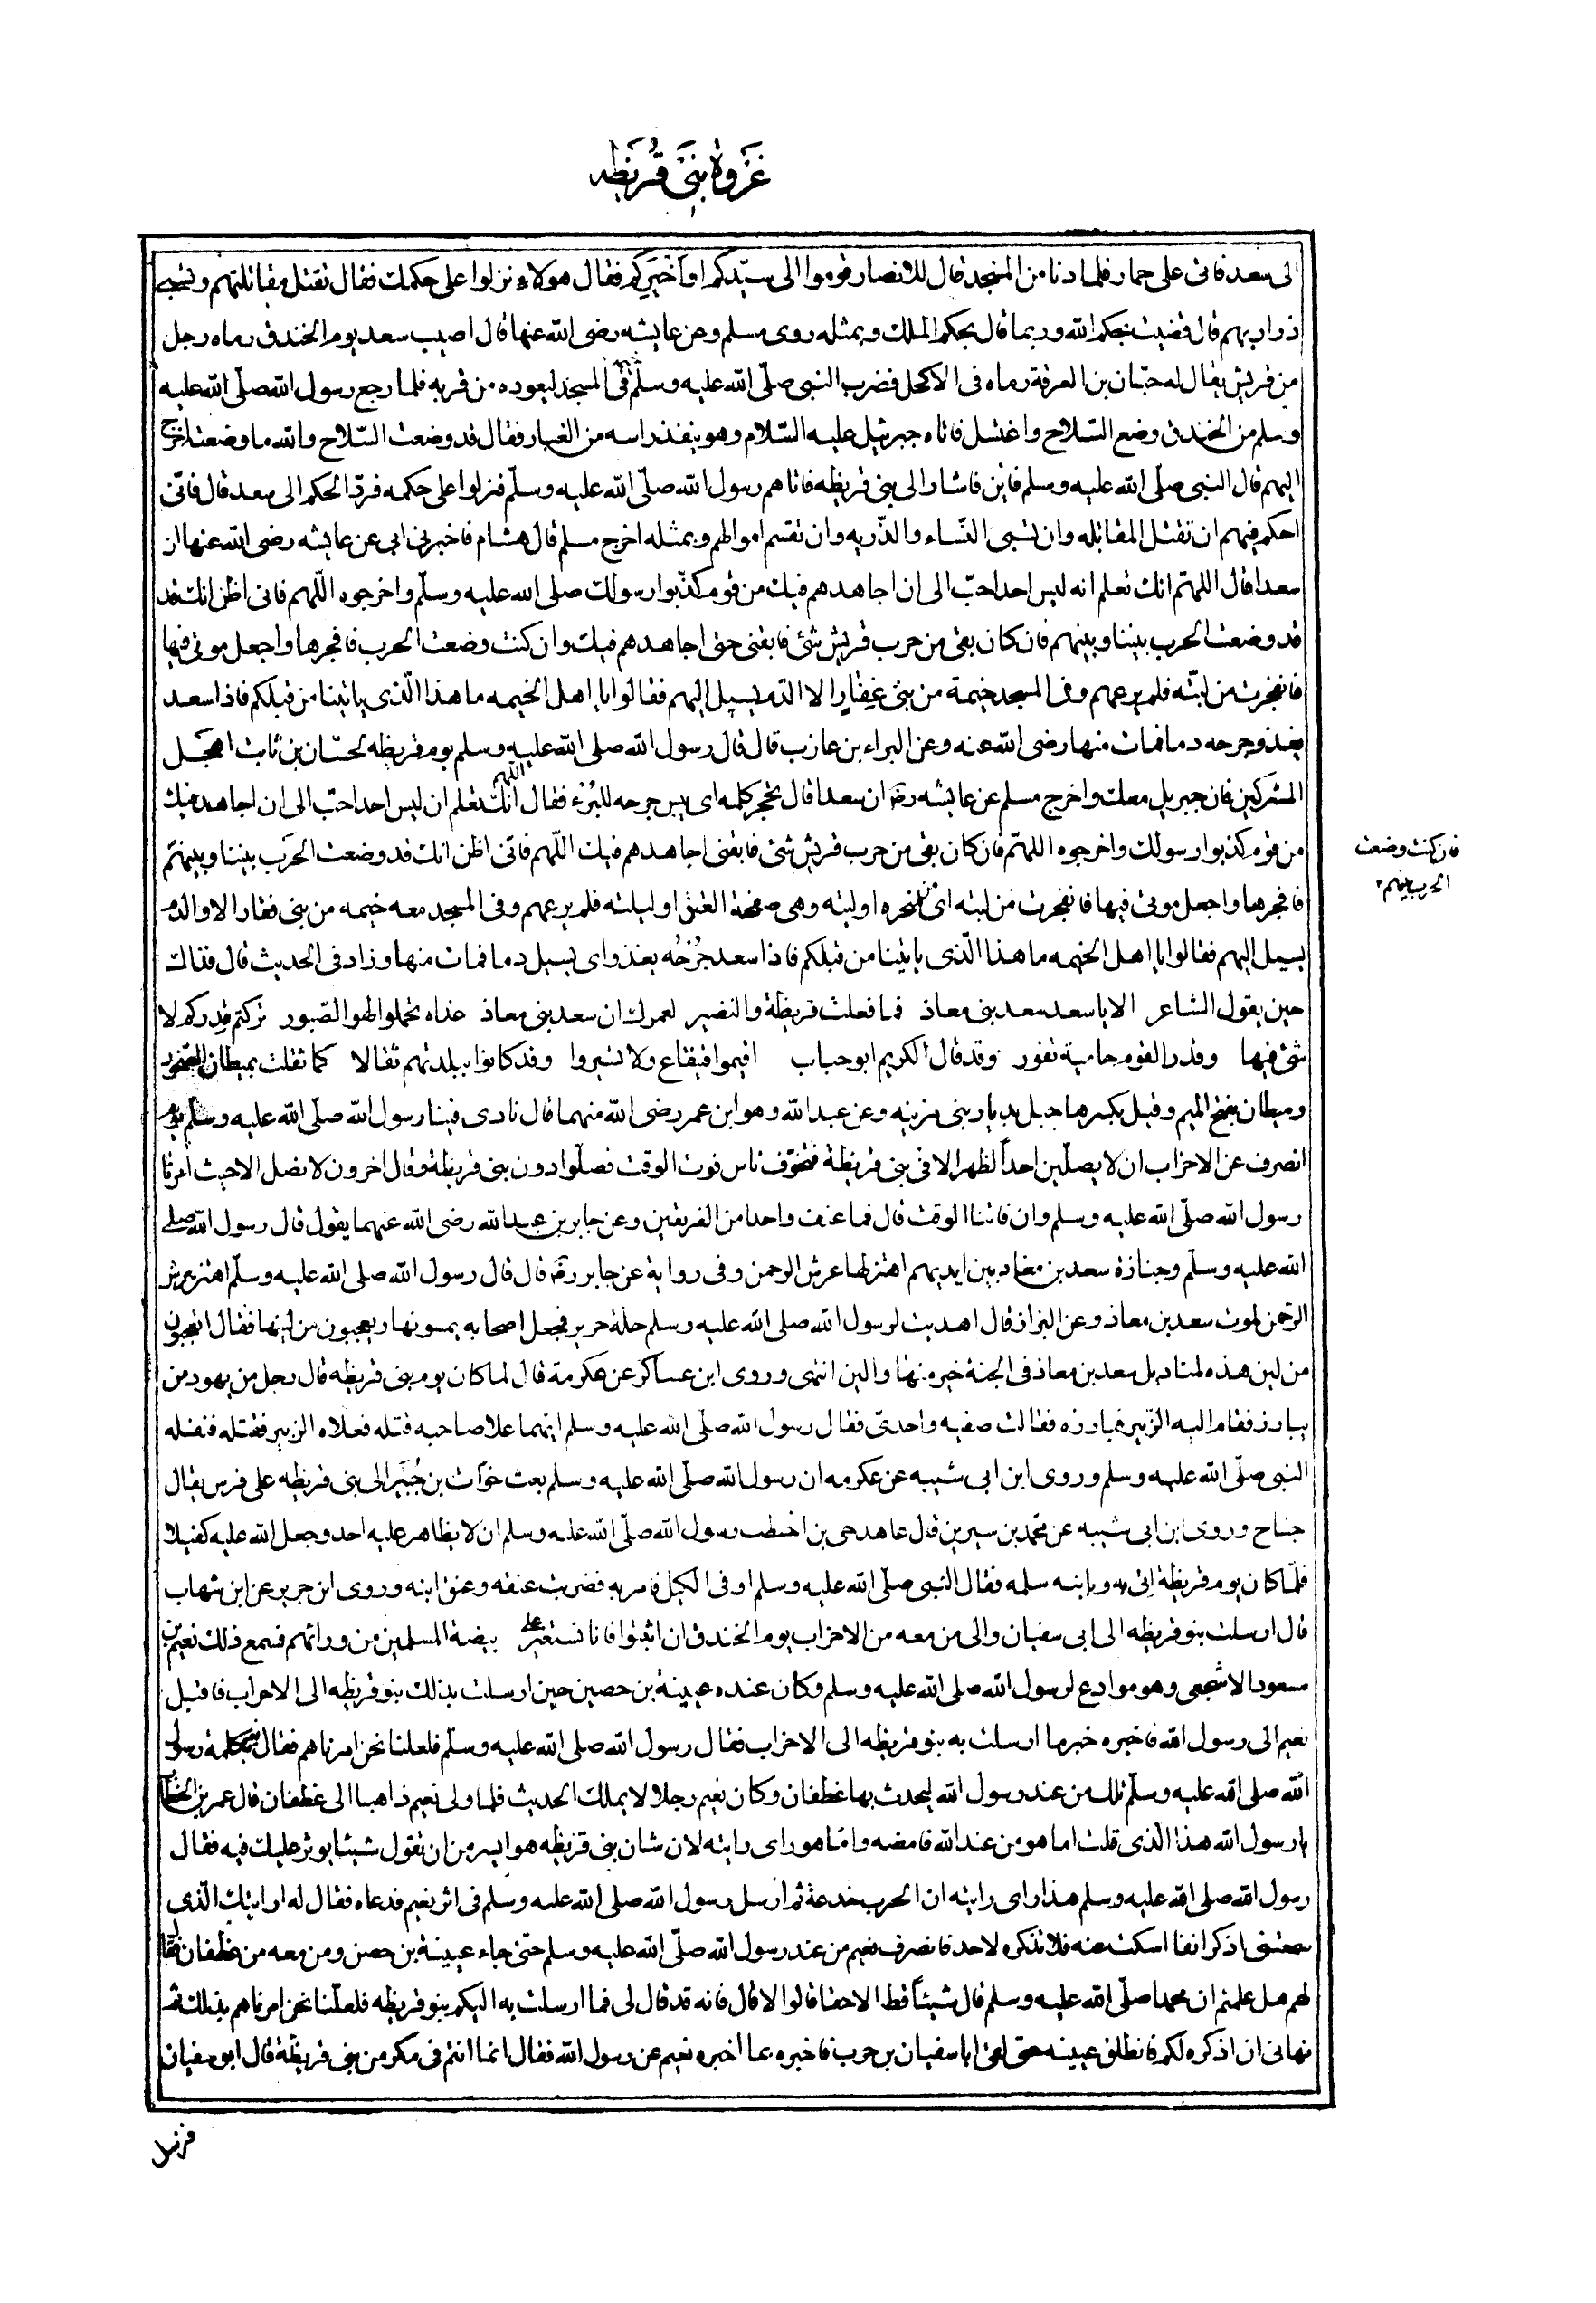 غَزوة بَنى قُرَيظه
الى سعد فاتى على حمار فلما دنا من المسجد قال للانصار قوموا الى سيّدكم او اَخْيَرِكم فقال هولاء نزلوا على حكمك فقال تقتل مقاتلتهم وتسبى
ذراريهم قال قضيت بحكم الله وربما قال بحكم الملك وبمثله روى مسلم وعن عايشه رضى الله عنها قال اصيب سعد يوم الخندق رماه رجل
من قريش يقال له حبّان بن العرقة رماه فى الاكحل فضرب النبى صلّى الله عليه وسلّم فى المسجد ليعوده من قريه فلما رجع رسول الله صلّى الله عليه
وسلم من الخندق وضع السّلاح واغتسل فاتاه جبرئيل عليه السّلام وهو ينفذ راسه من الغبار فقال قد وضعت السّلاح والله ما وضعته اخرج
اليهم قال النبى صلّى الله عليه وسلم فاين فاشار الى بنى قريظه فاتاهم رسول الله صلّى الله عليه وسلّم فنزلوا على حكمه فردّ الحكم الى سعد قال فانّى
احكم فيهم ان تقتل المقاتله وان تسبى النّساء والذّريه وان تقسم اموالهم وبمثله اخرج مسلم قال هشام فاخبرنى ابى عن عايشه رضى الله عنها ان
سعدا قال اللهمّ انك تعلم انه ليس احد احبّ الى ان اجاهدهم فيك من قوم كذّبوا رسولك صلى الله عليه وسلّم واخرجوه اللّهم فانى اظن انك قد
قد وضعت الحرب بيننا وبينهم فان كان بقى من حرب قريش شئ فابقنى حتى اجاهدهم فيك وان كنت وضعت الحرب فافجرها واجعل موتى فيها
فانفجرت من لبّته فلم يرعهم وفى المسجد خيمة من بنى غِفَارٍ الا الدم يسيل اليهم فقالوا يا اهل الخيمه ما هذا الّذى ياتينا من قبلكم فاذا سعد
يغذو جرحه دما فمات منها رضى الله عنه وعن البراء بن عازب قال قال رسول الله صلى الله عليه وسلم يوم قريظه لحسّان بن ثابت اهجُ
المشركين فان جبريل معك واخرج مسلم عن عايشه رضه ان سعدا قال تحجر كلمه اى يبس جرحه للبُرْءِ فقال اللهم انك تعلم ان ليس احد احبّ الى ان اجاهد فيك
من قوم كذبوا رسولك واخرجوه اللهمّ فان كان بقى من حرب قريش شئ فابقنى اجاهدهم فيك اللّهم فانى اظن انك قد وضعت الحَرب بيننا وبينهم
فان كنت وضعت
الحرب بينهم
فافجرها واجعل موتى فيها فانفجرت من لبته اى نحره او لبته وهى صفحة العنق او ليلته فلم يرعهم وفى المسجد معه خيمه من بنى غفار الا والدم
يسيل اليهم فقالوا يا اهل الخيمه ما هذا الّذى ياتينا من قبلكم فاذا سعد جُرْحُه يغذو اى يسيل دما فمات منها وزاد فى الحديث قال فذاك
حين يقول الشاعر الا يا سعد سعد بنى معاذ فما فعلت قريظة والنضير لعمرك ان سعد بنى معاذ غداة تحملوا لهو الصّبور تركتم قِدركم لا
شئ فيها وقدر القوم حامية تفور وقد قال الكريم ابو حباب اقيموا قينقاع ولا تسيروا وقد كانوا ببلدتهم ثقالا كما ثقلت بميطان الصّخور
وميطان بفتح الميم وقيل بكسرها جبل بديار بنى مزينه وعن عبد الله وهو ابن عمر رضى الله منهما قال نادى فينا رسول الله صلّى الله عليه وسلّم يوم
انصرف عن الاحزاب ان لا يصلّين احداً لظهر الا فى بنى قريظة فتخوّف ناس فوت الوقت فصلّوا دون بنى قريظة وقال اخرون لا نصل الا حيث امرنا
رسول الله صلّى الله عليه وسلم وان فاتنا الوقت قال فما عنف واحدا من الفريقين وعن جابر بن عبد الله رضى الله عنهما يقول قال رسول الله صلى
الله عليه وسلّم وجنازة سعد بن معاذ بين ايديهم اهتز لها عرش الرحمن وفى رواية عن جابر رضه قال قال رسول الله صلى الله عليه وسلّم اهتز عرش
الرّحمن لموت سعد بن معاذ وعن البراز قال اهديت لرسول الله صلى الله عليه وسلم حلة حرير فجعل اصحابه يمسونها ويعجبون من لينها فقال اتعجبون
من لين هذه لمناديل سعد بن معاذ فى الجنة خير منها والين انتهى وروى ابن عساكر عن عكرمة قال لما كان يوم بنى قريظه قال رجل من يهود من
يبارز فقام اليه الزّبير فبارزه فقالت صفيه واحدتى فقال رسول الله صلّى الله عليه وسلم ايهما علا صاحبه قتله فعلاه الزبير فقتله فنفله
النبى صلّى الله عليه وسلم وروى ابن ابى شيبه عن عكرمه ان رسول الله صلّى الله عليه وسلم بعث خوّات بن جُبَير الى بنى قريظه على فرس يقال
جناح وروى ابن ابى شيبه عن محمّد بن سيرين قال عاهد حى بن اخطب رسول الله صلّى الله عليه وسلم ان لا يظاهر عليه احد وجعل الله عليه كفيلا
فلمّا كان يوم قريظة اتى به وبابنه سلمه فقال النبى صلّى الله عليه وسلم اوفى الكيل فامر به فضربت عنقه وعنق ابنه وروى ابن جرير عن ابن شهاب
قال ارسلت بنو قريظه الى ابى سفيان والى من معه من الاحزاب يوم الخندق ان اثبتوا فانا سنغير على بيضة المسلمين من ورائهم فسمع ذلك نعيم بن
مسعود الاشجعى وهو موادع لرسول الله صلى الله عليه وسلم وكان عنده عيينة بن حصين حين ارسلت بذلك بنو قريظه الى الاحزاب فاقبل
نعيم الى رسول الله فاخبره خبر ما ارسلت به بنو قريظه الى الاحزاب فقال رسول الله صلى الله عليه وسلّم فلعلنا نحن امرناهم فقال نعيم بكلمة رسول
الله صلى الله عليه وسلّم تلك من عند رسول الله ليحدث بها غطفان وكان نعيم رجلا لا يملك الحديث فلما ولى نعيم ذاهبا الى غطفان قال عمر بن الخطاب
يا رسول الله هذا الّذى قلت اما هو من عند الله فامضه واما هو راى رايته لان شان بنى قريظه هو ايسر من ان تقول شيئا يوثر عليك فيه فقال
رسول الله صلى الله عليه وسلم هذا راى رايته ان الحرب خدعة ثم ارسل رسول الله صلى الله عليه وسلم فى اثر نعيم فدعاه فقال له ارايتك الّذى
سمعتنى اذكر انفا اسكت عنه فلا تذكره لاحد فانصرف نعيم من عند رسول الله صلّى الله عليه وسلم حتى جاء عيينة بن حصن ومن معه من غطفان فقا
لهم هل علمتم ان محمدا صلّى الله عليه وسلم قال شيئاً قط الا حقا قالوا لا قال فانه قد قال لى فما ارسلت به اليكم بنو قريظه فلعلّنا نحن امرناهم بذلك ثم
نهانى ان اذكره لكم فانطلق عيينه حتى لقى ابا سفيان بن حرب فاخبره بما اخبره نعيم عن رسول الله فقال انما انتم فى مكر من بنى قريظة قال ابو سفيان